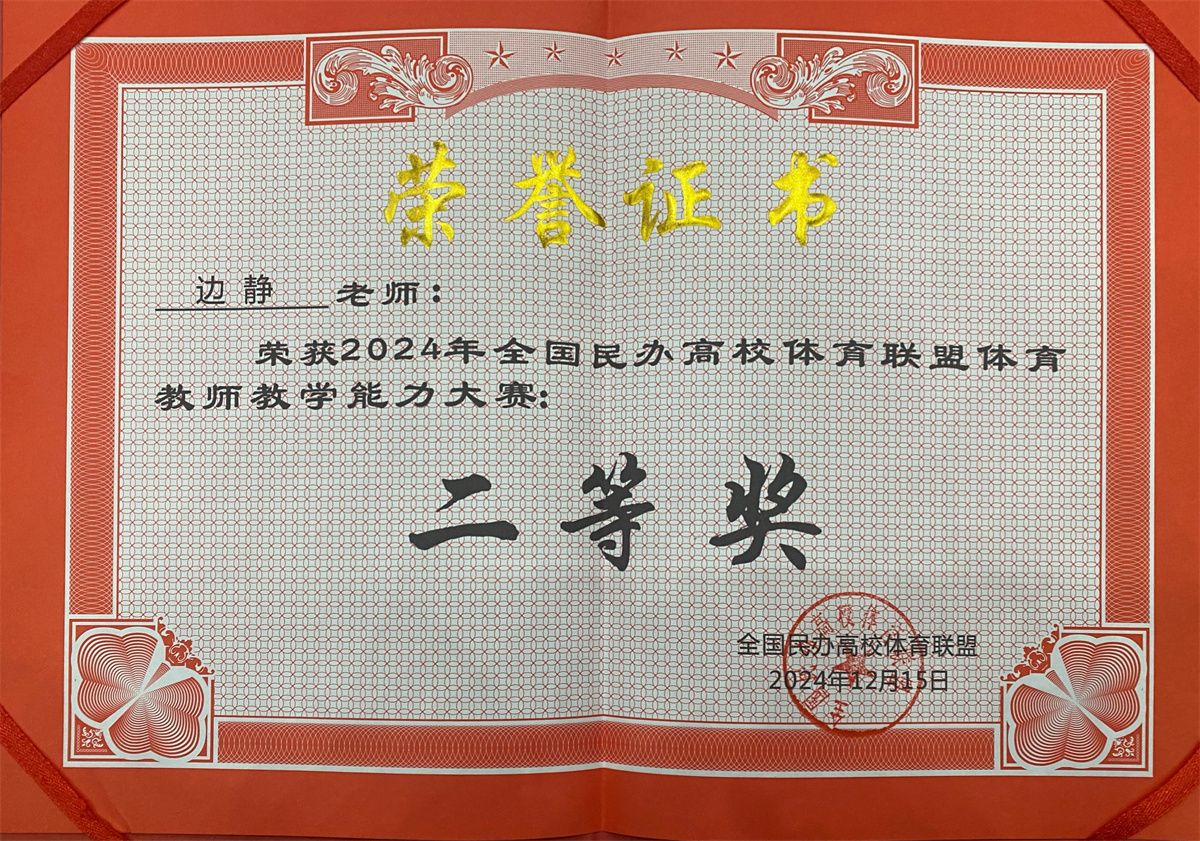 荣誉证书
边静 老师：
荣获2024年全国民办高校体育联盟体育
教师教学能力大赛：
二等奖
全国民办高校体育联盟
2024年12月15日